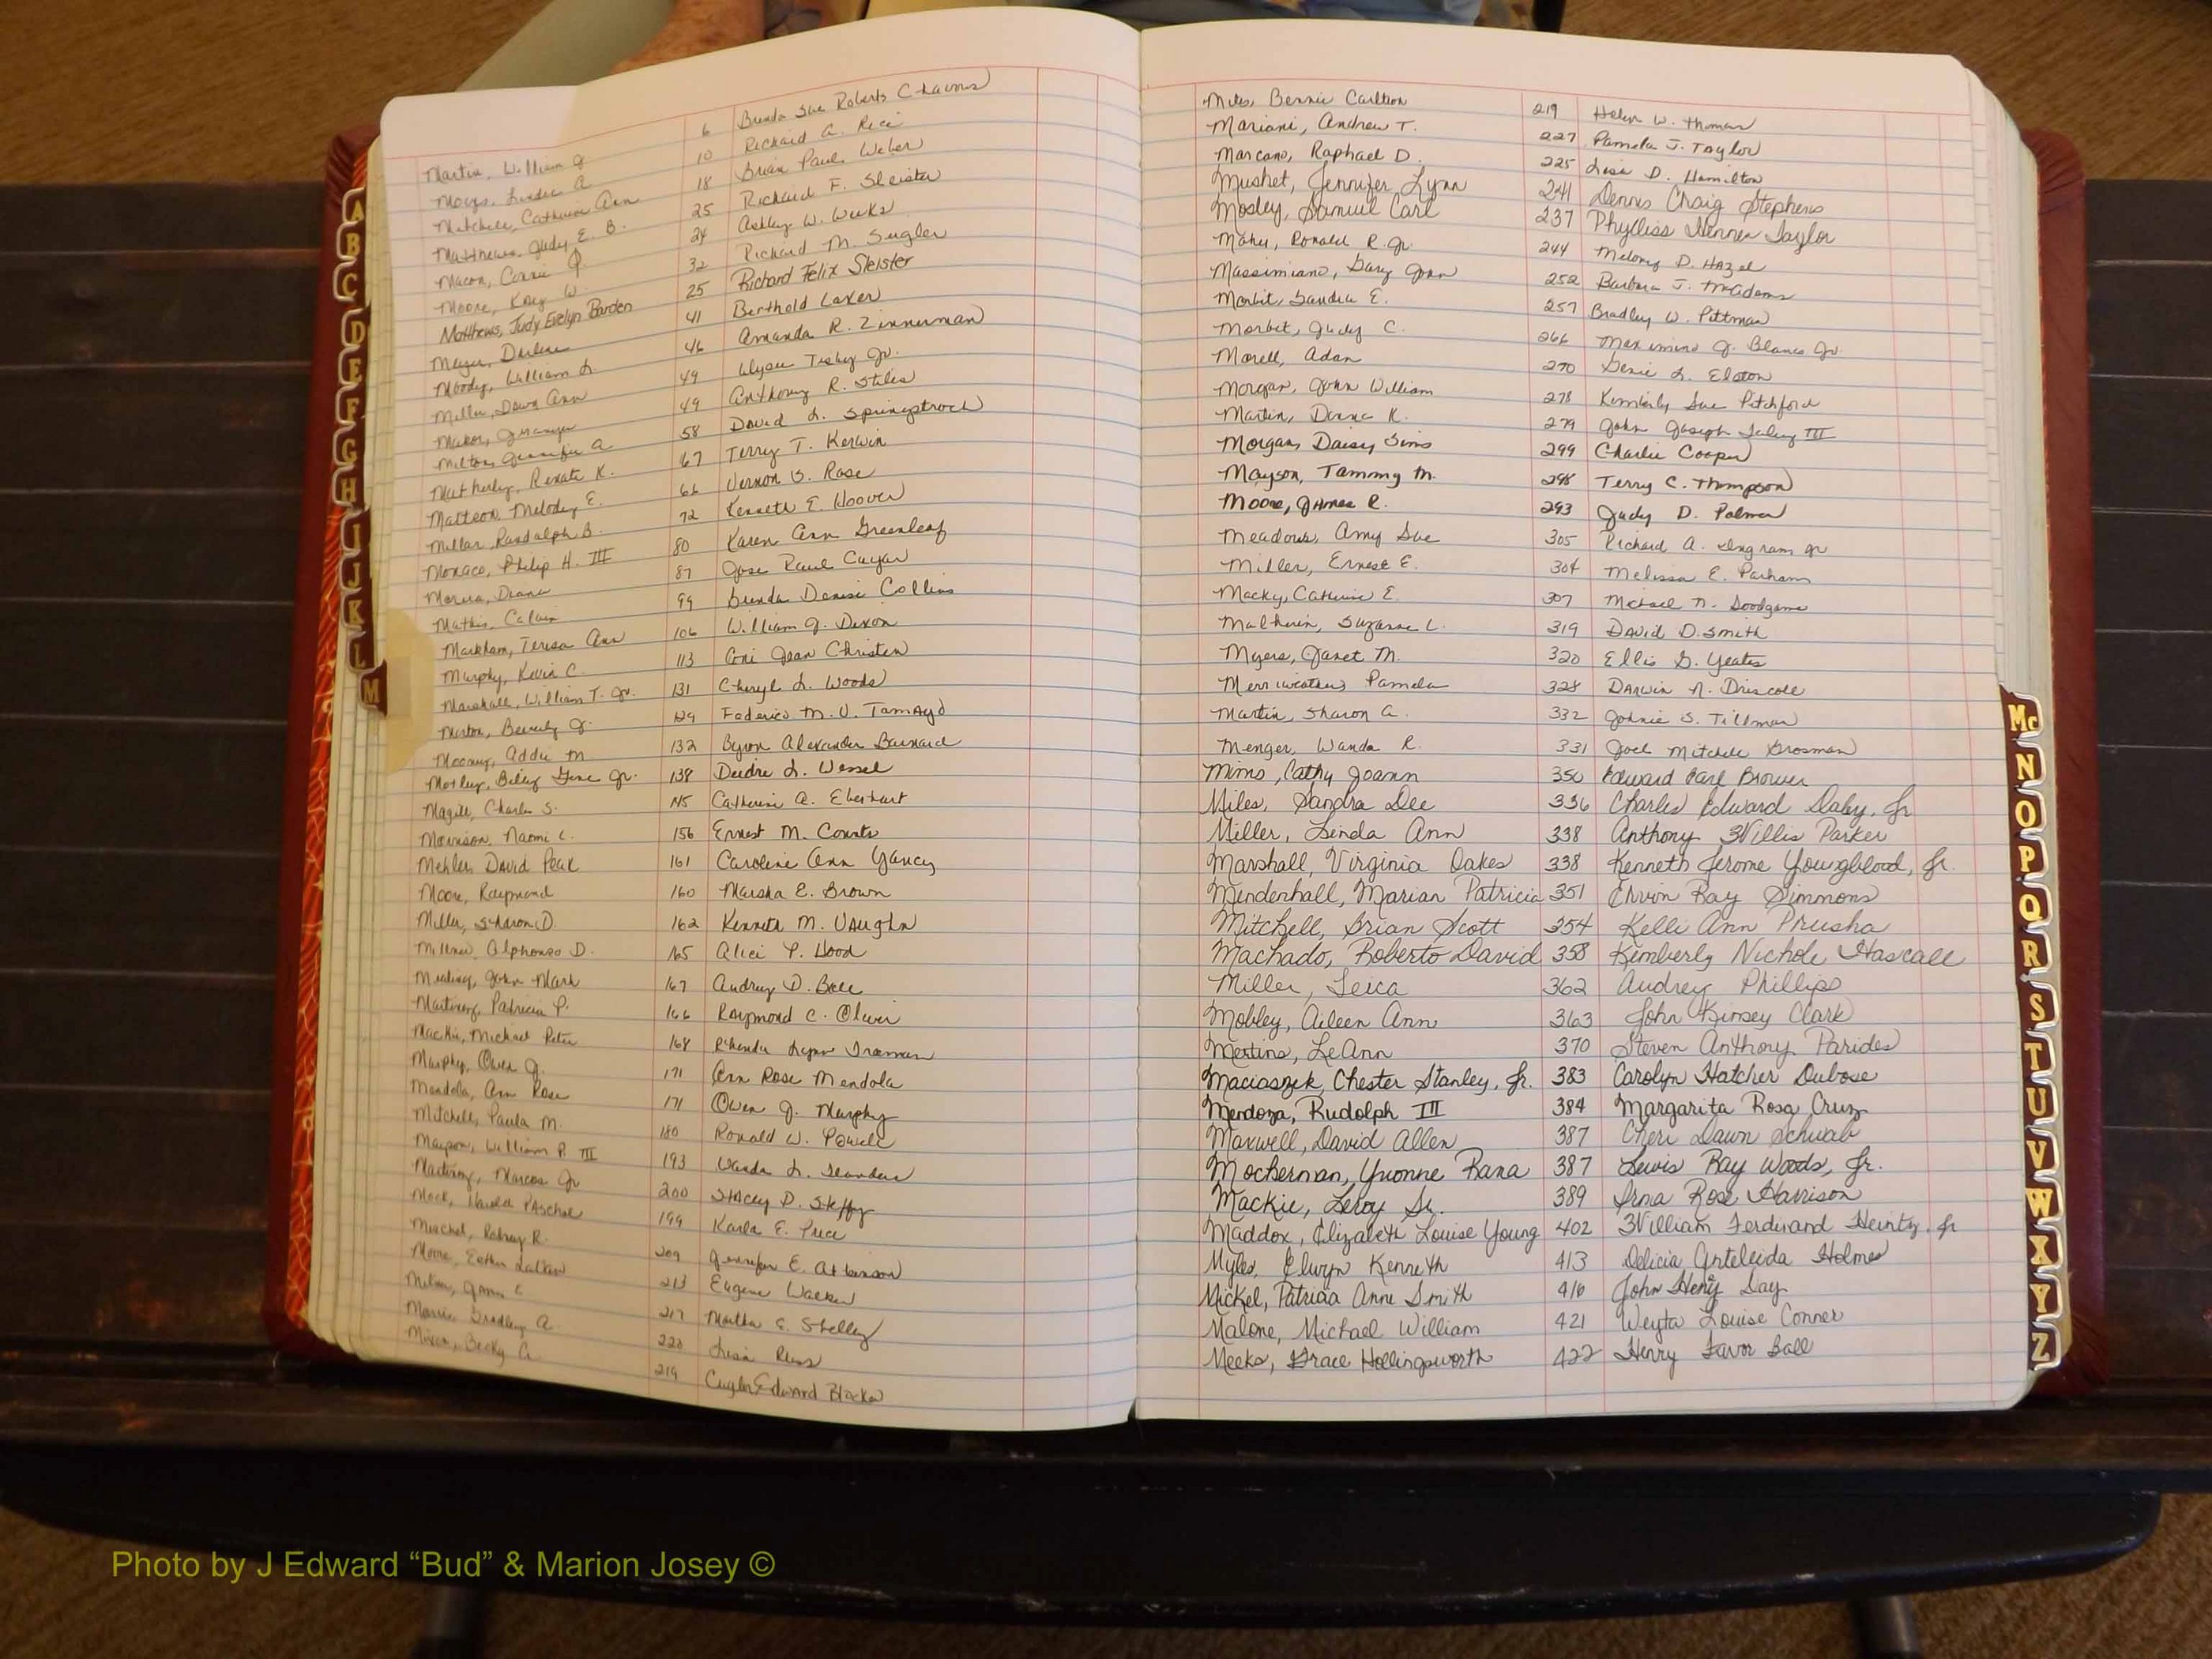 Martin, William J 6 Brenda Sue Roberts Chavous
Mays, Linda A 10 Richard A. Rice
Mitchell, Catherine Ann 18 Brian Paul Weber
Matthews, Judy E. B. 25 Richard F. Sleister
Macon, Connie J 24 Ashley W. Weeks
Moore, Kay W. 32 Richard M. Sugler
Matthews, Judy Evelyn Barden 25 Richard Felix Sleister
Meyer, Darlene 41 Berthold Laxer
Moody, William L. 46 Amanda R. Zinnerman
Miller, Dawn Ann 49 Jr.
49 Anthony R. Stiles
Milton, Jennifer A. 58 David L. Springstroh
Matherly, Renate K. 67 Terry T. Kerwin
Matteon, Melody E. 66 Vernon B. Rose
Millar, Randolph B. 72 Kenneth E. Hoover
Monaco, Philip H. III 80 Karen Ann Greenleaf
Diana 87 Jose Raul
Mathis, Calvin 99 Brenda Denise Collins
Markham, Teresa Ann 106 William J. Dixon
Murphy, Kevin C. 113 Cori Jean Christen
Marshall, William T. Jr. 131 Cheryl L. Woods
Morton, Beverly J. 129 Federico M. V. Tamayo
Addie M. 132 Byron Alexander Barnard
Motley, Billy Gene Jr. 138 Deidre L. Wessel
Magill, Charles S. 145 Catherine A. Eberhart
Morrison, Naomi C. 156 Ernest M. Counts
Mehler, David Peak 161 Caroline Ann Yancy
Moore, Raymond 160 Marsha E. Brown
Miller, Sharon D. 162 Kenneth M. Vaughn
Alphonso D. 165 Alice P. Hood
Mealing, John Mark 167 Audrey D. Bell
Martinez, Patricia P. 166 Raymond C. Oliver
Mackie, Michael Peter 168 Rhenda Lynn
Murphy, Owen J. 171 Ann Rose Mendola
Mendola, Ann Rose 171 Owen J. Murphy
Mitchell, Paula M. 180 Ronald W. Powell
Mayson, William P. III 193 Wanda L.
Martinez, Marcos Jr 200 Stacey D. Steffy
Mock, Harold Paschal 199 Karla E. Price
Rodney R. 209 Jennifer E. Atkinson
Moore, Esther 213 Eugene Walker
James E. 217 Martha E. Shelley
Morris, Bradley A. 220 Lisa
Mixon, Becky A. 219 Cuyler Edward Blocker
Miles, Bennie Carlton 219 Helen W. Thomas
Mariani, Andrew T. 227 Pamela J. Taylor
Marcano, Raphael D. 225 Lisa D. Hamilton
Mushet, Jennifer Lynn 241 Dennis Craig Stephens
Mosley, Samuel Carl 237 Phylliss Taylor
Ronald R. Jr. 244 Melony D. Hazel
Massimiano, Gary John 252 Barbara J. McAdams
Morbit, Sandra E. 257 Bradley W. Pittman
Morbit, Judy C. 266 Maximino J. Blanco Jr.
Morell, Adan 270 Genie L. Elston
Morgan, John William 278 Kimberly Sue Pitchford
Martin, Donna K. 279 John Joseph III
Morgan, Daisy Sims 299 Charlie Cooper
Mayson, Tammy M. 298 Terry C. Thompson
Moore, James R. 293 Judy D. Palmer
Meadows, Amy Sue 305 Richard A. Ingram Jr
Miller, Ernest E. 304 Melissa E. Parham
Macky, Catherine E. 307 Michael N. Goodgame
Mulherin, Suzanne L. 319 David D. Smith
Myers, Janet M. 320 Ellis G. Yeates
Merriweather, Pamela 328 Darwin N. Driscole
Martin, Sharon A. 332 Johnie S. Tillman
Menger, Wanda R. 331 Joel Mitchell Grosman
Mims, Cathy Joann 350 Edward Earl Brower
Miles, Sandra Dee 336 Charles Edward Daley, Jr
Miller, Linda Ann 338 Anthony Willis Parker
Marshall, Virginia Oakes 338 Kenneth Jerome Youngblood, Jr.
Mendenhall, Marian Patricia 351 Ervin Ray Simmons
Mitchell, Brian Scott 354 Kelli Ann Prusha
Machado, Roberto David 358 Kimberly Nichole Hascall
Miller, Leica 362 Audrey Phillips
Mobley, Aileen Ann 363 John Kinsey Clark
Mertins, LeAnn 370 Steven Anthony Parides
Maciaszek, Chester Stanley, Jr. 383 Carolyn Hatcher Dubose
Mendoza, Rudolph III 384 Margarita Rosa Cruz
Maxwell, David Allen 387 Cheri Dawn Schwab
Mockerman, Yvonne Rana 387 Lewis Ray Woods, Jr.
Mackie, Leroy Sr. 389 Irma Rose Harrison
Maddox, Elizabeth Louise Young 402 William Ferdinand Heintz, Jr
Myles, Elwyn Kenneth 413 Delicia Holmes
Mickel, Patricia Anne Smith 416 John Henry Day
Malone, Michael William 421 Weyta Louise Conner
Meeks, Grace Hollingsworth 422 Henry Favor Ball
A
B
C
D
E
F
G
H
I
J
K
L
M
Mc
N
O
P
Q
R
S
T
U
V
W
X
Y
Z
Photo by J Edward “Bud” & Marion Josey ©